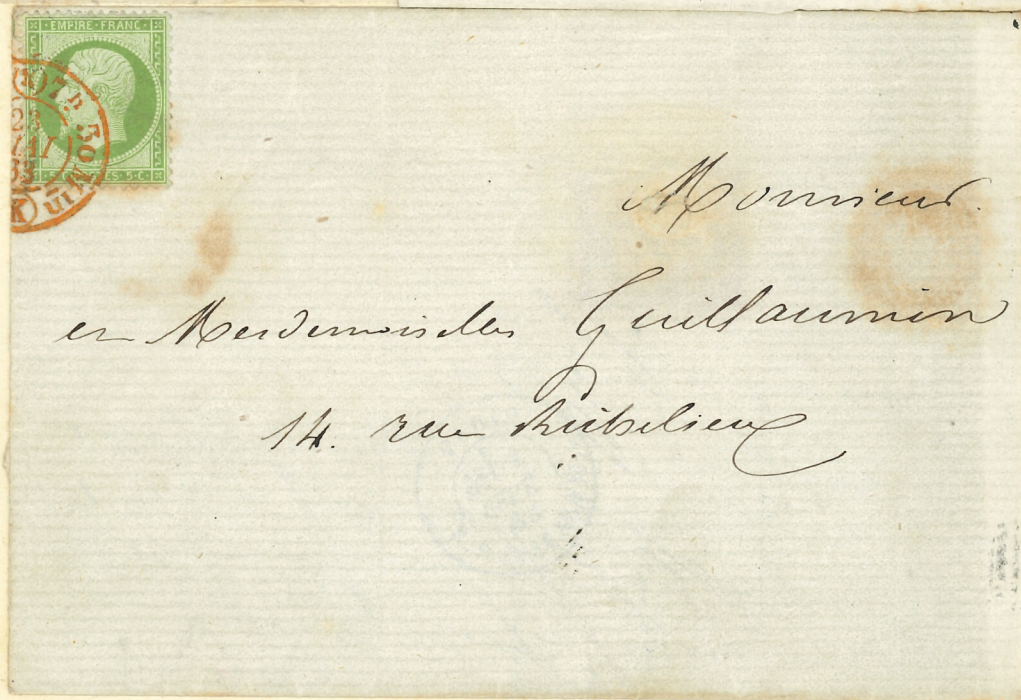 EMPIRE · FRANC ·
7h 50 Min
MAI
K
5 · C ·
Monsieur.
et Mesdemoiselles Guillaumin
14. rue Richelieu